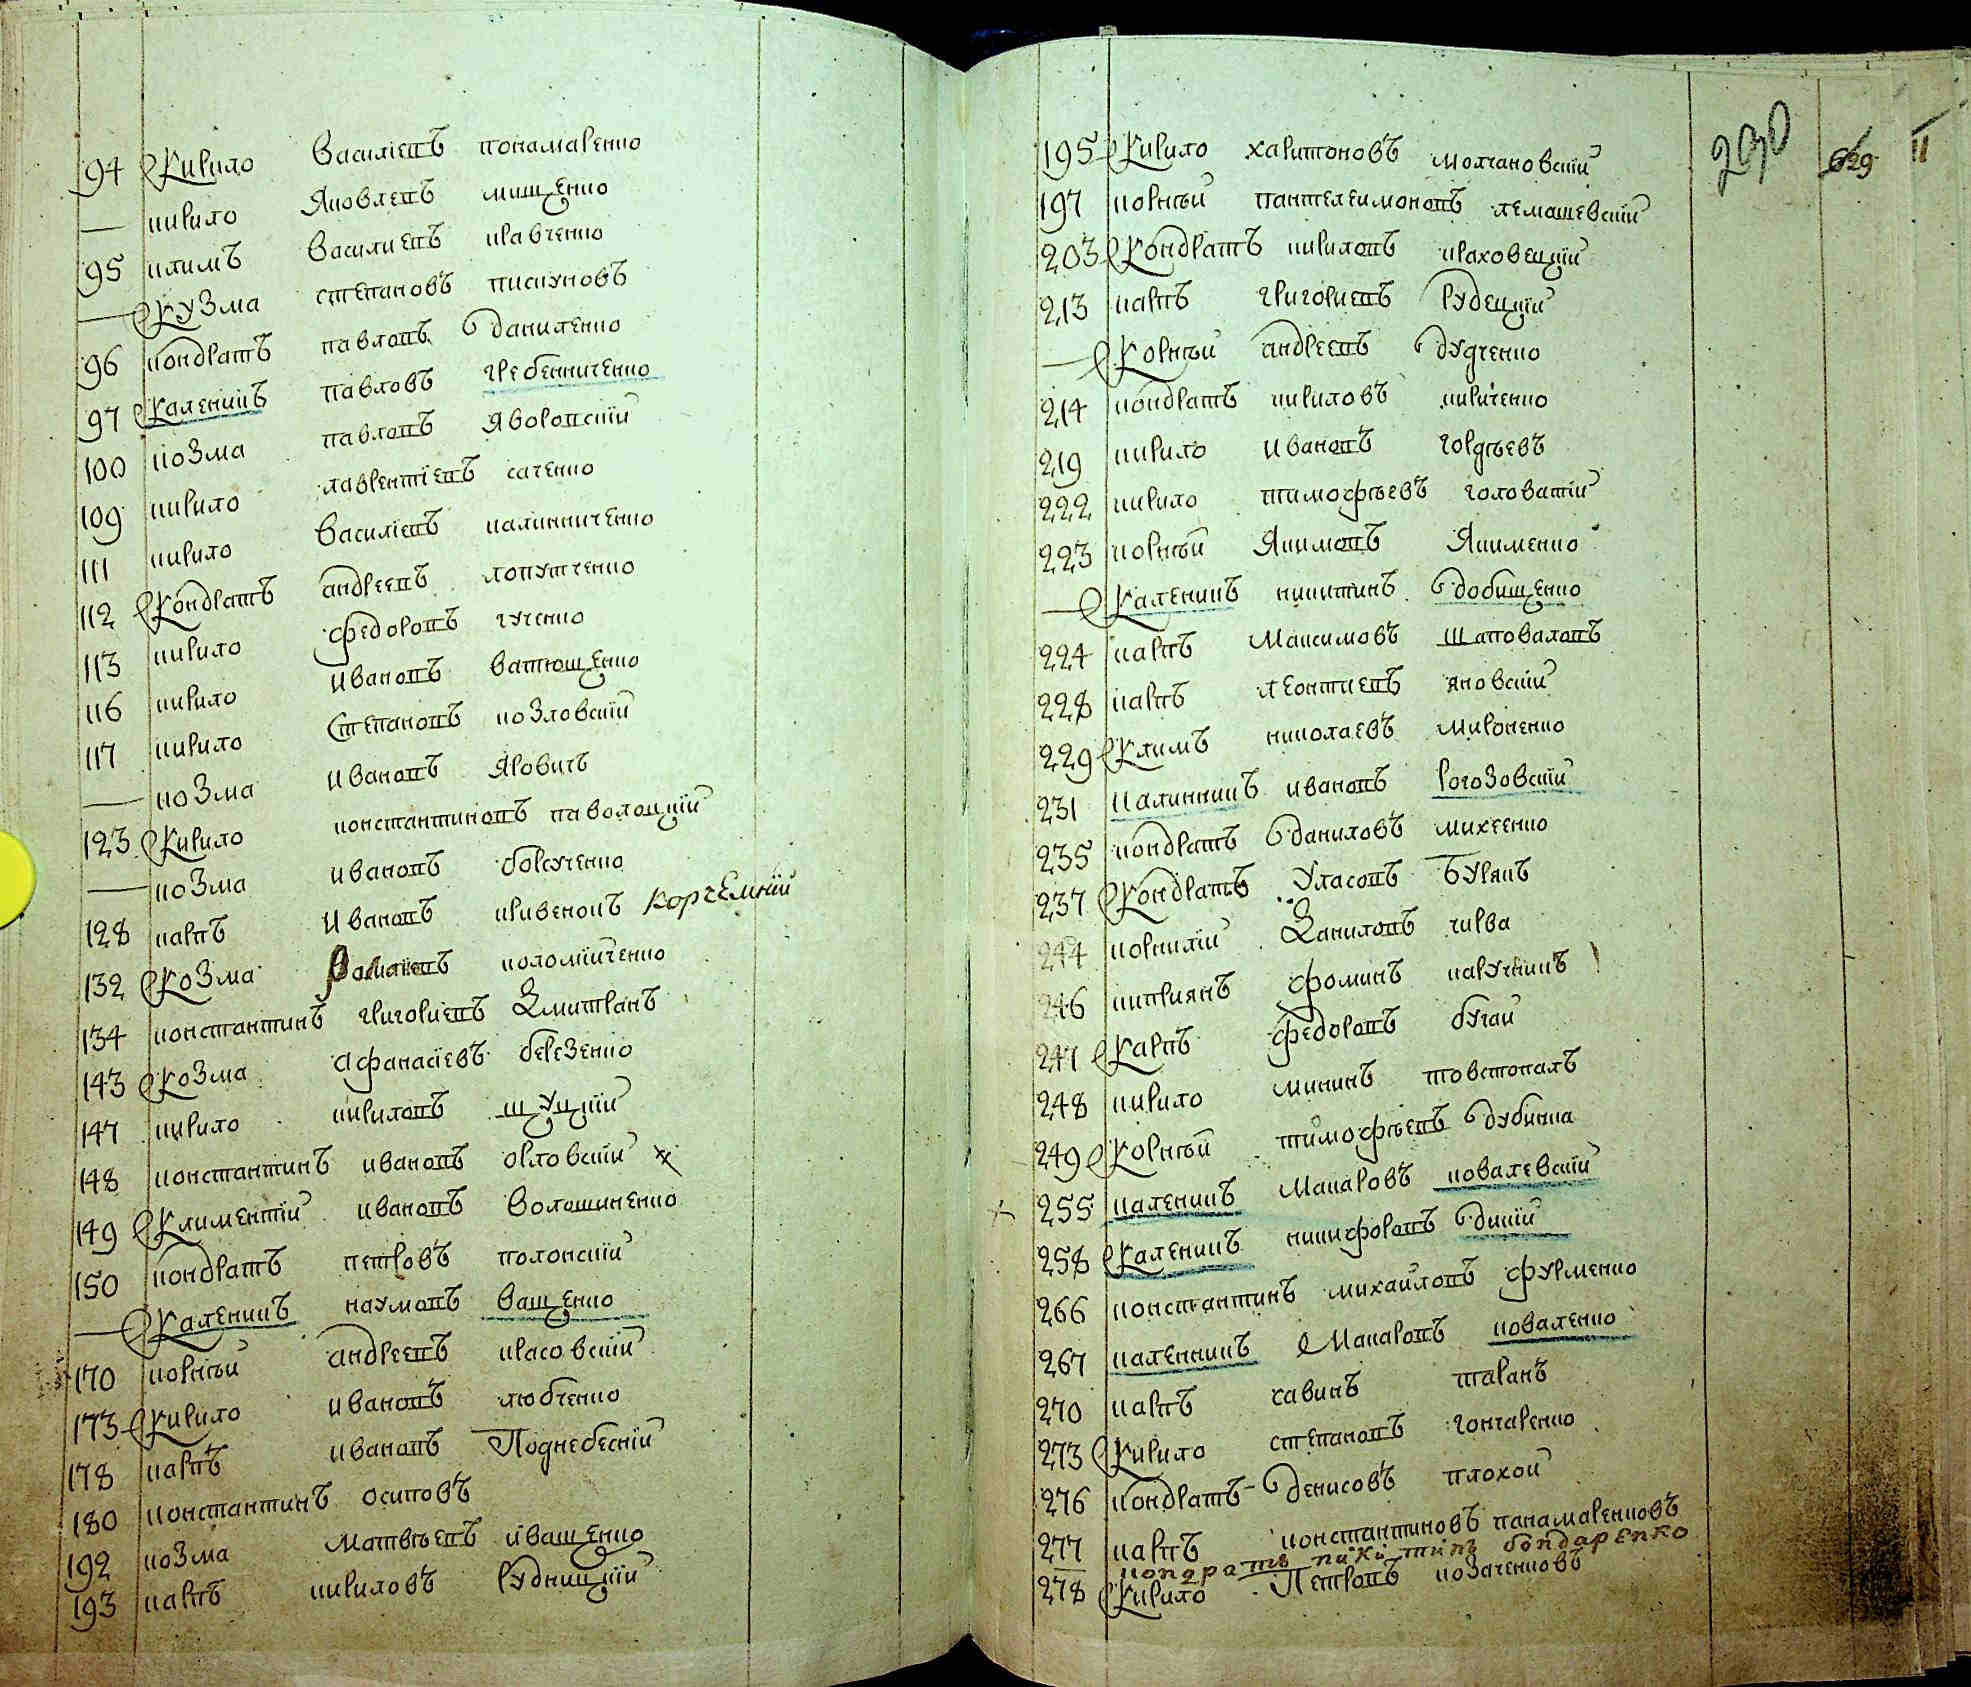 94 Кирило Василіевъ понамаренко
— кирило Яковлевъ мищенко
95 климъ Василиевъ кравченко
— Кузма степановъ пискуновъ
96 кондратъ павловъ даниленко
97 Каленикъ павловъ гребенниченко
100 козма павловъ Яворовскій
109 кирило лаврентіевъ саченко
111 кирило Василіевъ калинниченко
112 Кондратъ андреевъ лопутченко
113 кирило федоровъ гученко
116 кирило ивановъ ватющенко
117 кирило Степановъ козловскій
— козма ивановъ Яровичъ
123 Кирило константиновъ паволоцкій
— козма ивановъ борсученко
128 карпъ Ивановъ кривенокъ корчемній
132 Козма коломійченко
134 константинъ григориевъ Дмитранъ
143 Козма Афанасіевъ березенко
147 кирило кириловъ щуцкій
148 константинъ ивановъ орловскій
149 Климентій ивановъ Волошиненко
150 кондратъ петровъ полонскій
— Каленикъ наумовъ ващенко
170 корнѣй андреевъ красовскій
173 Кирило ивановъ любченко
178 карпъ ивановъ Поднебесній
180 константинъ осиповъ
192 козма матвѣевъ иващенко
193 карпъ кириловъ Рудницкій
230 629 11
195 Кирило харитоновъ молчановскій
197 корнѣй пантелеимоновъ лемашевскій
203 Кондратъ кириловъ краховецкій
213 карпъ григориевъ Рудецкій
— Корнѣй андреевъ дудченко
214 кондратъ кириловъ кириченко
219 кирило ивановъ гордѣевъ
222 кирило тимофѣевъ головатій
223 корнѣй Якимовъ Якименко
— Каленикъ никитинъ добищенко
224 карпъ Максимовъ шаповаловъ
228 карпъ леонтиевъ яновскій
229 Климъ николаевъ мироненко
231 Калинникъ ивановъ Рогозовскій
235 кондратъ даниловъ михеенко
237 Кондратъ Уласовъ Бурякъ
244 корнилій Даниловъ чирва
246 киприянъ фоминъ каручникъ
247 Карпъ федоровъ бугай
248 кирило мининъ товстопалъ
249 Корнѣй тимофѣевъ дубинка
255 каленикъ Макаровъ ковалевскій
258 Каленикъ никифоровъ дикій
266 константинъ михайловъ фурменко
267 каленникъ Макаровъ коваленко
270 карпъ савинъ таранъ
273 Кирило степановъ гончаренко
276 кондратъ денисовъ плохой
277 карпъ константиновъ панамаренковъ
— кондратъ никитинъ бондаренко
278 Кирило Петровъ козаченковъ